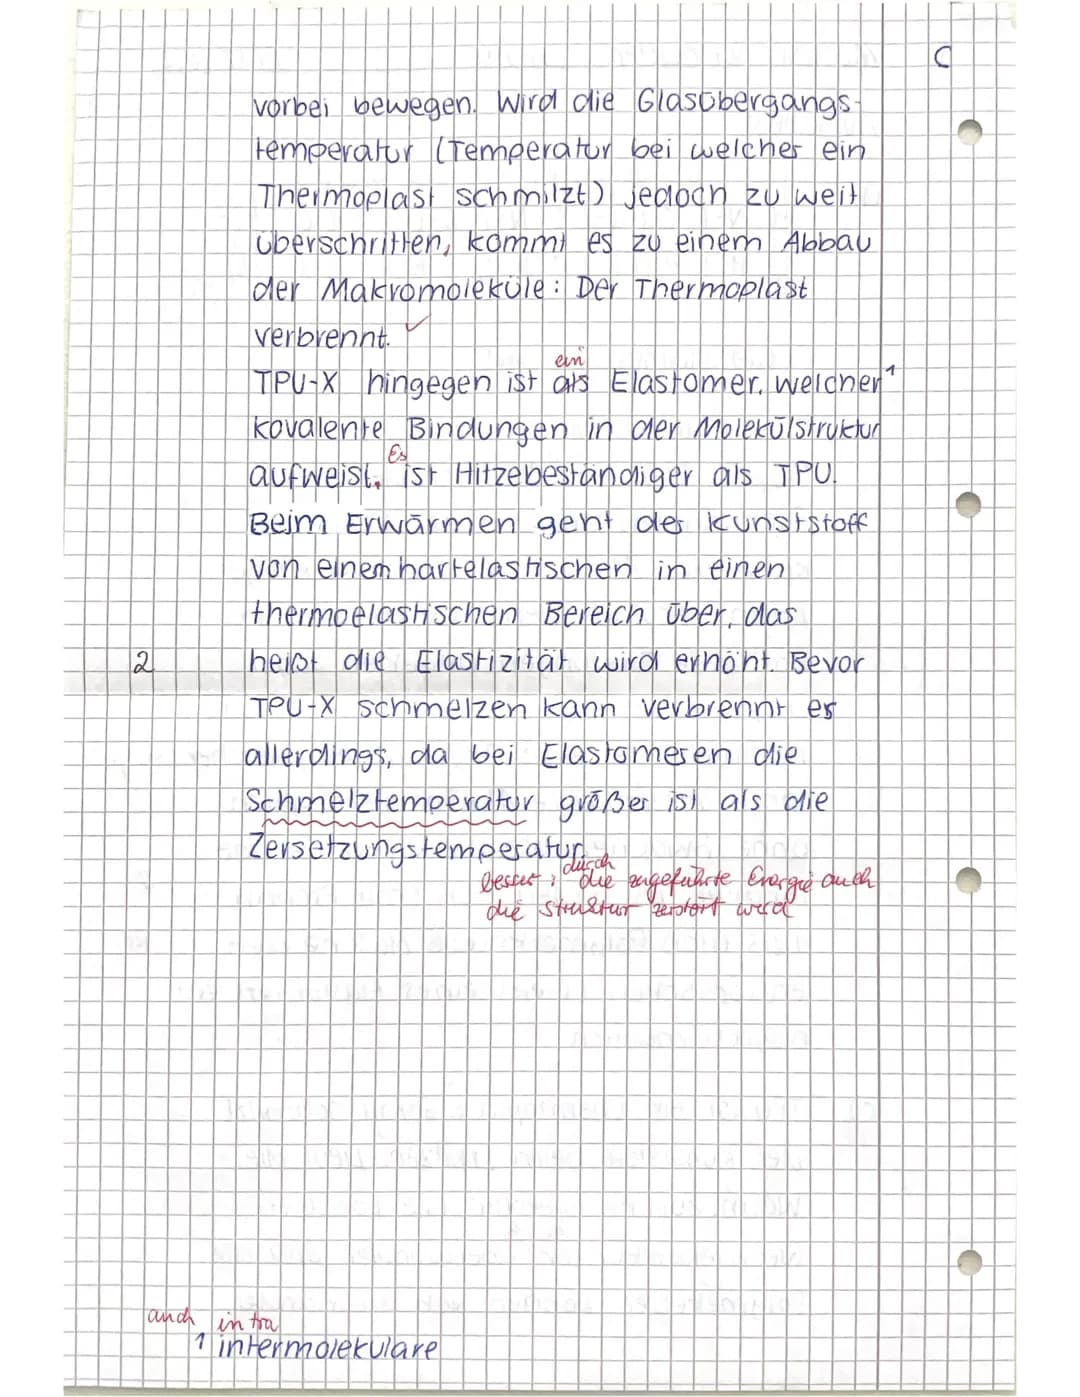 C
vorbei bewegen. Wird die Glasübergangs-
temperatur (Temperatur bei welcher ein
Thermoplast schmilzt) jedoch zu weit
überschritten, kommt es zu einem Abbau
der Makromoleküle: Der Thermoplast
verbrennt. ✓
ein
TPU-X hingegen ist als Elastomer, welcher¹
kovalente Bindungen in der Molekülstruktur
Es
aufweist. ist Hitzebeständiger als TPU.
Beim Erwärmen geht der Kunststoff
von einem hartelastischen in einen
thermoelastischen Bereich über, das
2 heißt die Elastizität wird erhöht. Bevor
TPU-X schmelzen kann verbrennt er
allerdings, da bei Elastomeren die
Schmelztemperatur größer ist als die
Zersetzungstemperatur
durch
besser: die zugeführte Energie auch
die Struktur zerstört wird
auch intra
1 intermolekulare